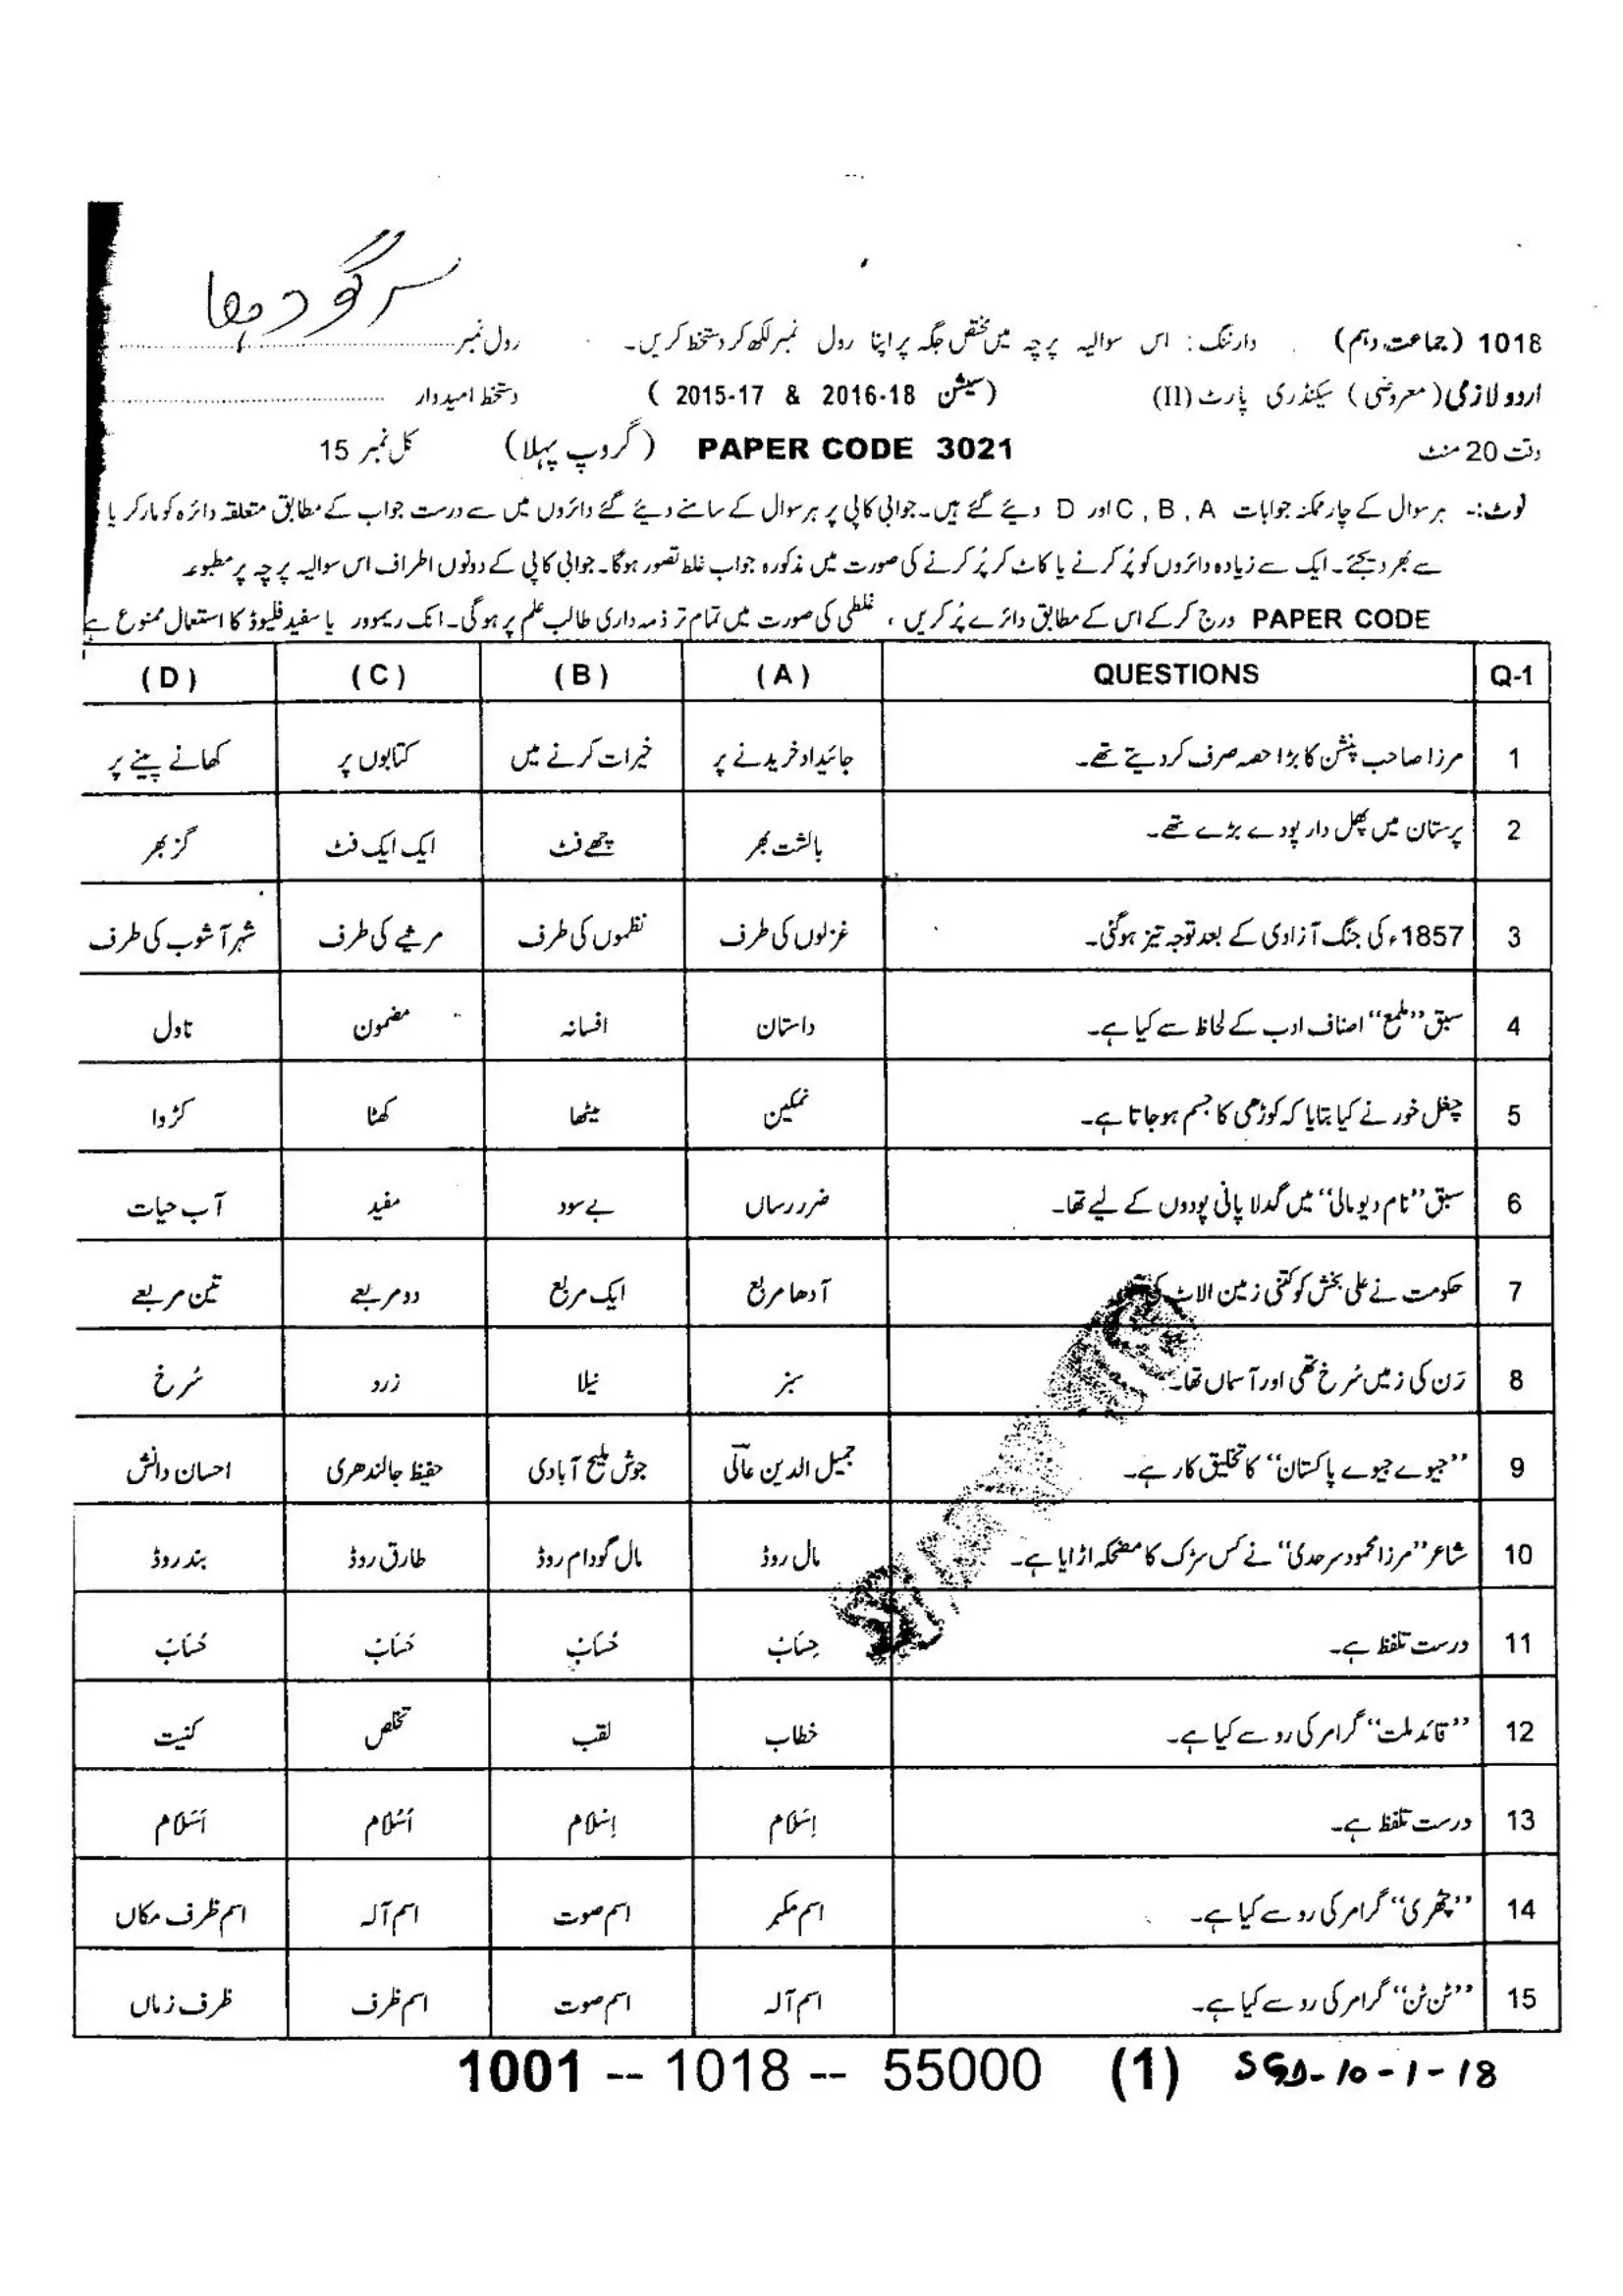 سرگودھا
1018 (جماعت دہم) وارننگ: اس سوالیہ پرچہ میں مختص جگہ پر اپنا رول نمبر لکھ کر دستخط کریں۔ رول نمبر
اردو لازمی (معروضی) سیکنڈری پارٹ (II) (سیشن 2016-18 & 2015-17) دستخط امیدوار
وقت 20 منٹ PAPER CODE 3021 (گروپ پہلا) کل نمبر 15
نوٹ:- ہر سوال کے چار ممکنہ جوابات A , B , C اور D دیئے گئے ہیں۔ جوابی کاپی پر ہر سوال کے سامنے دیئے گئے دائروں میں سے درست جواب کے مطابق متعلقہ دائرہ کو مارکر یا
سے بھر دیجئے۔ ایک سے زیادہ دائروں کو پُر کرنے یا کاٹ کر پُر کرنے کی صورت میں مذکورہ جواب غلط تصور ہوگا۔ جوابی کاپی کے دونوں اطراف اس سوالیہ پرچہ پر مطبوعہ
PAPER CODE درج کر کے اس کے مطابق دائرے پُر کریں ، غلطی کی صورت میں تمام تر ذمہ داری طالب علم پر ہوگی۔ انک ریموور یا سفید فلیوڈ کا استعمال ممنوع ہے
Q-1 QUESTIONS (A) (B) (C) (D)
1 مرزا صاحب پنشن کا بڑا حصہ صرف کر دیتے تھے۔ جائیداد خریدنے پر خیرات کرنے میں کتابوں پر کھانے پینے پر
2 پرستان میں پھل دار پودے بڑے تھے۔ بالشت بھر چھے فٹ ایک ایک فٹ گز بھر
3 1857ء کی جنگ آزادی کے بعد توجہ تیز ہوگئی۔ غزلوں کی طرف نظموں کی طرف مرثیے کی طرف شہر آشوب کی طرف
4 سبق "ملمع" اصناف ادب کے لحاظ سے کیا ہے۔ داستان افسانہ مضمون ناول
5 چغل خور نے کیا بتایا کہ کوڑھی کا جسم ہو جاتا ہے۔ نمکین میٹھا کھٹا کڑوا
6 سبق "نام دیو مالی" میں گدلا پانی پودوں کے لیے تھا۔ ضرر رساں بے سود مفید آب حیات
7 حکومت نے علی بخش کو کتنی زمین الاٹ کی آدھا مربع ایک مربع دو مربعے تین مربعے
8 رَن کی زمیں سُرخ تھی اور آسماں تھا۔ سبز نیلا زرد سُرخ
9 "جیوے جیوے پاکستان" کا تخلیق کار ہے۔ جمیل الدین عالی جوش ملیح آبادی حفیظ جالندھری احسان دانش
10 شاعر "مرزا محمود سرحدی" نے کس سڑک کا مضحکہ اڑایا ہے۔ مال روڈ مال گودام روڈ طارق روڈ بند روڈ
11 درست تلفظ ہے۔ حِسَابْ حُسَابْ حَسَابْ حُسَابْ
12 "قائد ملت" گرامر کی رو سے کیا ہے۔ خطاب لقب تخلص کنیت
13 درست تلفظ ہے۔ اِسَلام اِسْلام اُسْلام اَسَلام
14 "چھری" گرامر کی رو سے کیا ہے۔ اسم مکبر اسم صوت اسم آلہ اسم ظرف مکاں
15 "ٹن ٹن" گرامر کی رو سے کیا ہے۔ اسم آلہ اسم صوت اسم ظرف ظرف زماں
1001 -- 1018 -- 55000 (1) SGD-10-1-18